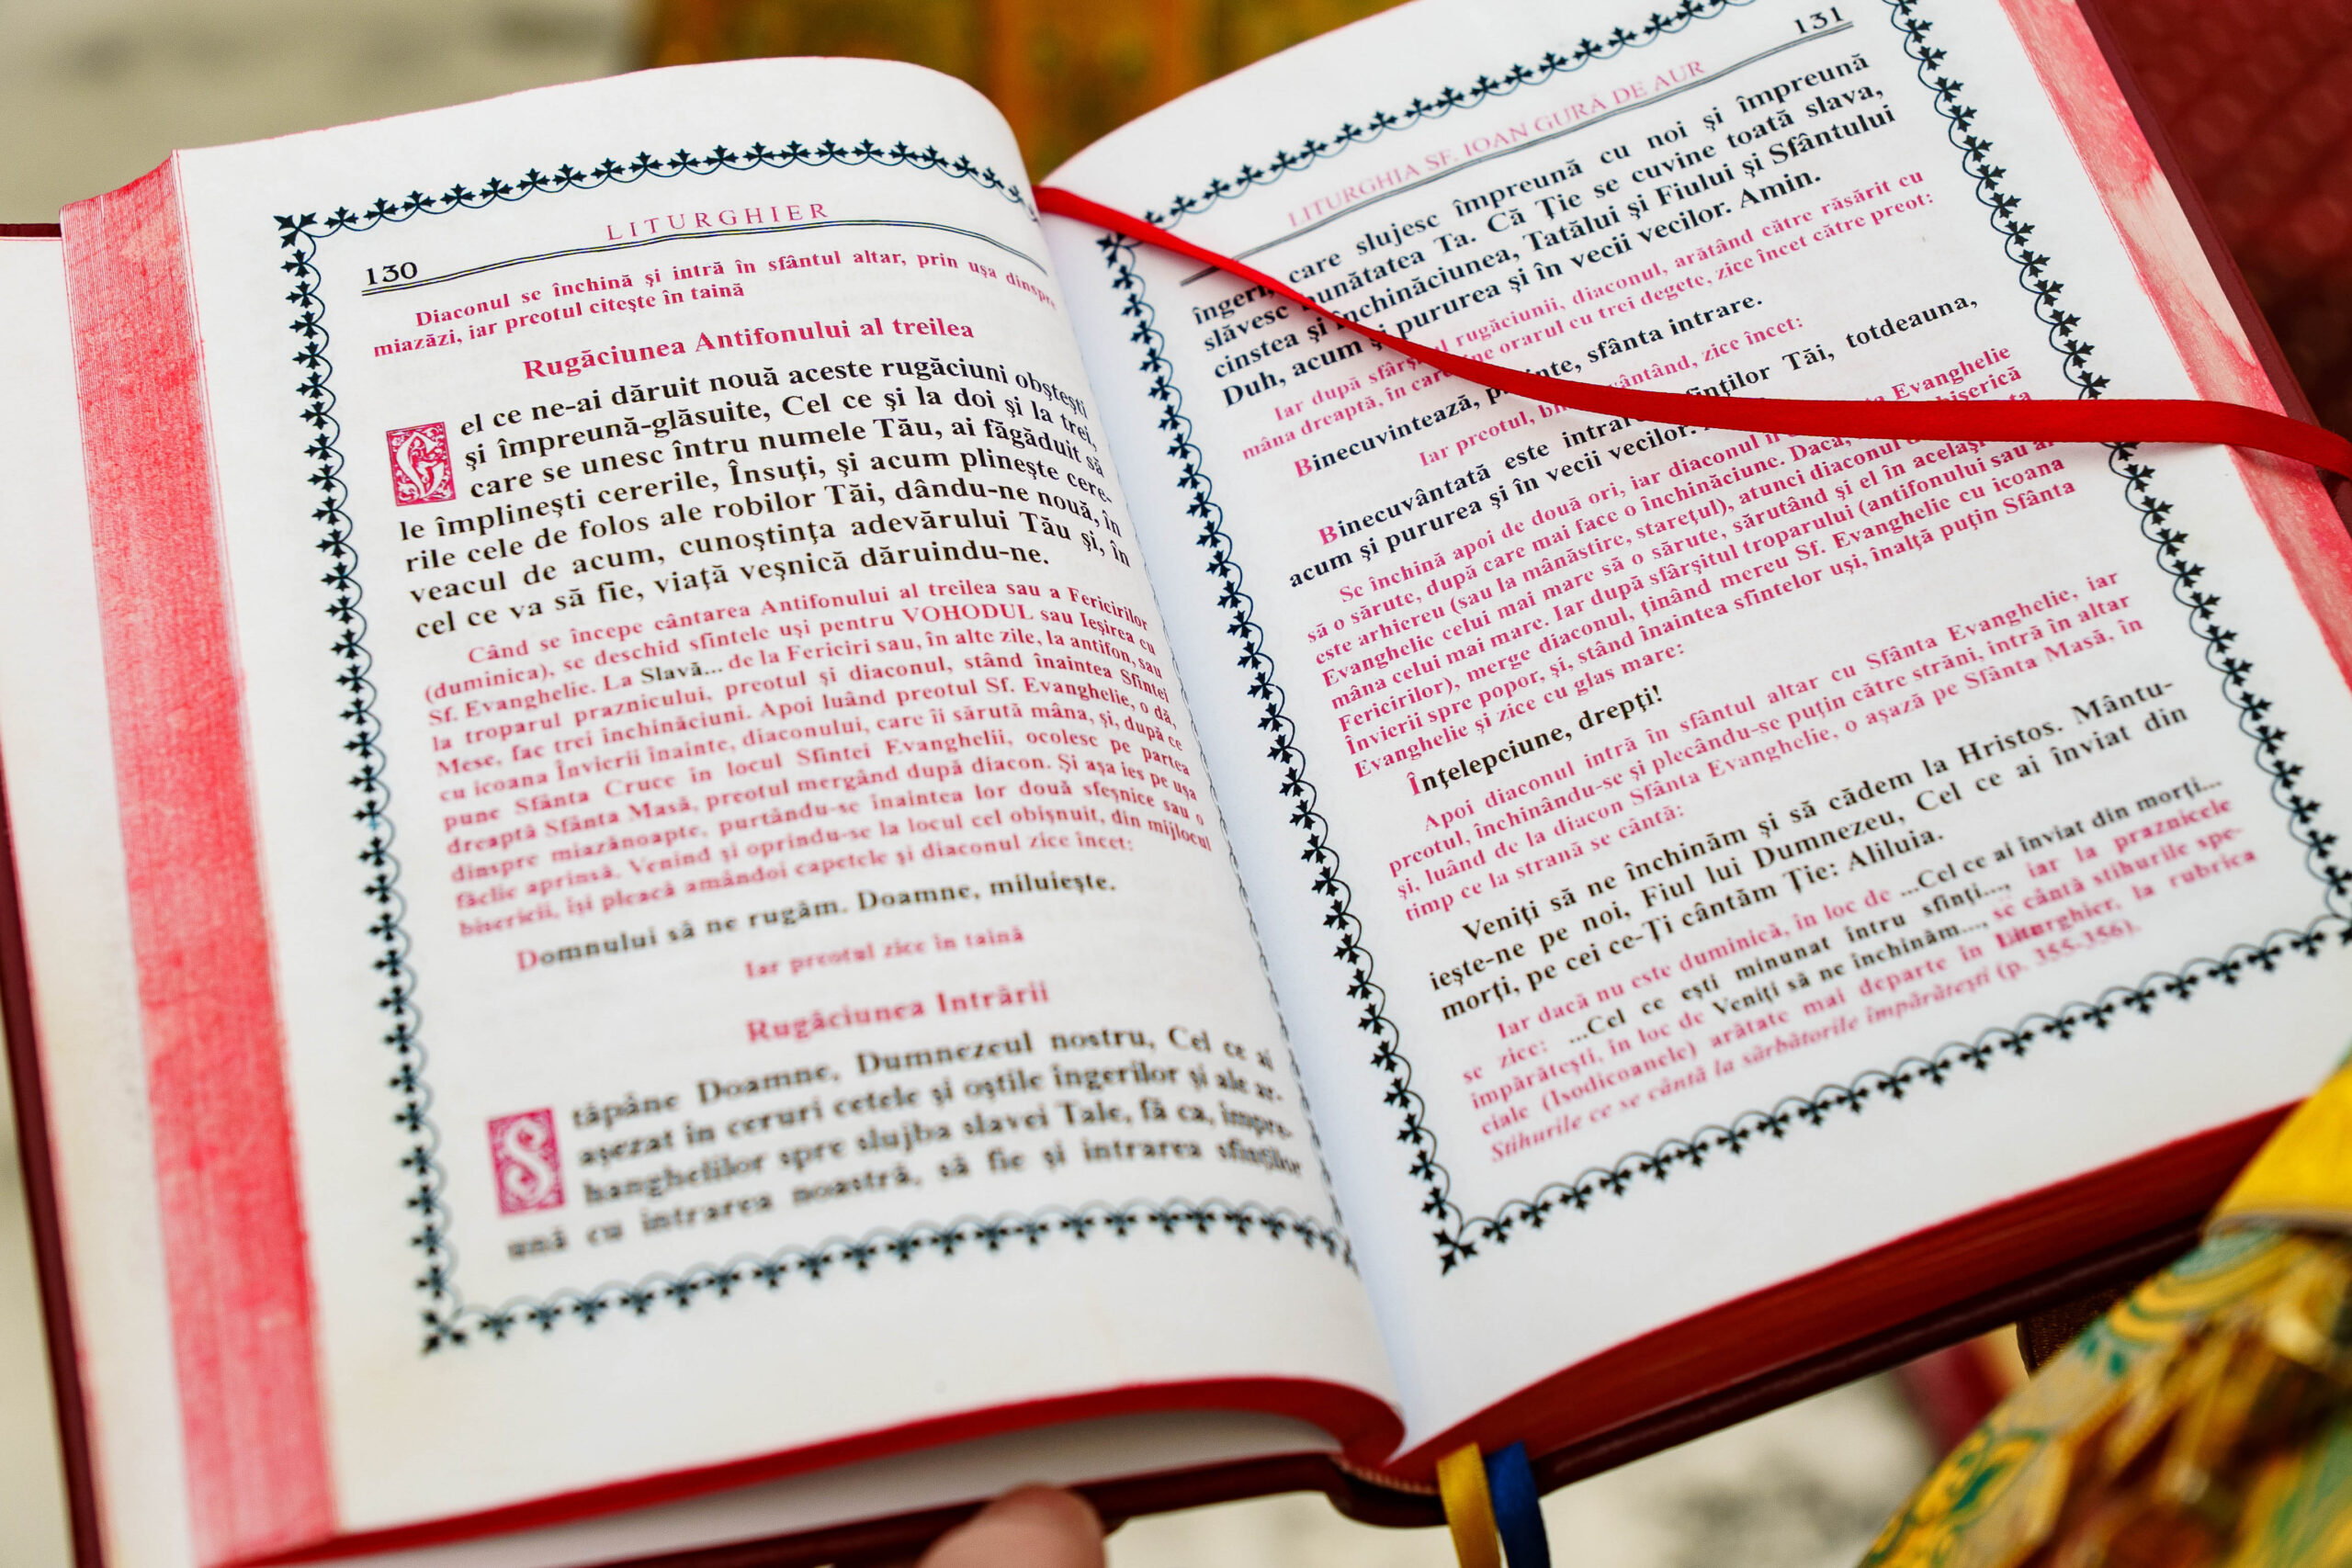 130
LITURGHIER
Diaconul se închină şi intră în sfântul altar, prin uşa dinspre
miazăzi, iar preotul citeşte în taină
Rugăciunea Antifonului al treilea
Cel ce ne-ai dăruit nouă aceste rugăciuni obşteşti
şi împreună-glăsuite, Cel ce şi la doi şi la trei,
care se unesc întru numele Tău, ai făgăduit să
le împlineşti cererile, Însuţi, şi acum plineşte cere-
rile cele de folos ale robilor Tăi, dându-ne nouă, în
veacul de acum, cunoştinţa adevărului Tău şi, în
cel ce va să fie, viaţă veşnică dăruindu-ne.
Când se începe cântarea Antifonului al treilea sau a Fericirilor
(duminica), se deschid sfintele uşi pentru VOHODUL sau Ieşirea cu
Sf. Evanghelie. La Slavă... de la Fericiri sau, în alte zile, la antifon, sau
la troparul praznicului, preotul şi diaconul, stând înaintea Sfintei
Mese, fac trei închinăciuni. Apoi luând preotul Sf. Evanghelie, o dă,
cu icoana Învierii înainte, diaconului, care îi sărută mâna, şi, după ce
pune Sfânta Cruce în locul Sfintei Evanghelii, ocolesc pe partea
dreaptă Sfânta Masă, preotul mergând după diacon. Şi aşa ies pe uşa
dinspre miazănoapte, purtându-se înaintea lor două sfeşnice sau o
făclie aprinsă. Venind şi oprindu-se la locul cel obişnuit, din mijlocul
bisericii, îşi pleacă amândoi capetele şi diaconul zice încet:
Domnului să ne rugăm. Doamne, miluieşte.
Iar preotul zice în taină
Rugăciunea Intrării
Stăpâne Doamne, Dumnezeul nostru, Cel ce ai
aşezat în ceruri cetele şi oştile îngerilor şi ale ar-
hanghelilor spre slujba slavei Tale, fă ca, împre-
ună cu intrarea noastră, să fie şi intrarea sfinţilor
131
LITURGHIA SF. IOAN GURĂ DE AUR
îngeri, care slujesc împreună cu noi şi împreună
slăvesc bunătatea Ta. Că Ţie se cuvine toată slava,
cinstea şi închinăciunea, Tatălui şi Fiului şi Sfântului
Duh, acum şi pururea şi în vecii vecilor. Amin.
Iar după sfârşitul rugăciunii, diaconul, arătând către răsărit cu
mâna dreaptă, în care ţine orarul cu trei degete, zice încet către preot:
Binecuvintează, părinte, sfânta intrare.
Iar preotul, binecuvântând, zice încet:
Binecuvântată este intrarea sfinţilor Tăi, totdeauna,
acum şi pururea şi în vecii vecilor.
Se închină apoi de două ori, iar diaconul îi Evanghelie
să o sărute, după care mai face o închinăciune. Dacă, biserică
este arhiereu (sau la mânăstire, stareţul), atunci diaconul
Evanghelie celui mai mare să o sărute, sărutând şi el în acelaşi
mâna celui mai mare. Iar după sfârşitul troparului (antifonului sau al
Fericirilor), merge diaconul, ţinând mereu Sf. Evanghelie cu icoana
Învierii spre popor, şi, stând înaintea sfintelor uşi, înalţă puţin Sfânta
Evanghelie şi zice cu glas mare:
Înţelepciune, drepţi!
Apoi diaconul intră în sfântul altar cu Sfânta Evanghelie, iar
preotul, închinându-se şi plecându-se puţin către străni, intră în altar
şi, luând de la diacon Sfânta Evanghelie, o aşază pe Sfânta Masă, în
timp ce la strană se cântă:
Veniţi să ne închinăm şi să cădem la Hristos. Mântu-
ieşte-ne pe noi, Fiul lui Dumnezeu, Cel ce ai înviat din
morţi, pe cei ce-Ţi cântăm Ţie: Aliluia.
Iar dacă nu este duminică, în loc de ...Cel ce ai înviat din morţi...
se zice: ...Cel ce eşti minunat întru sfinţi..., iar la praznicele
împărăteşti, în loc de Veniţi să ne închinăm..., se cântă stihurile spe-
ciale (Isodicoanele) arătate mai departe în Liturghier, la rubrica
Stihurile ce se cântă la sărbătorile împărăteşti (p. 355-356).